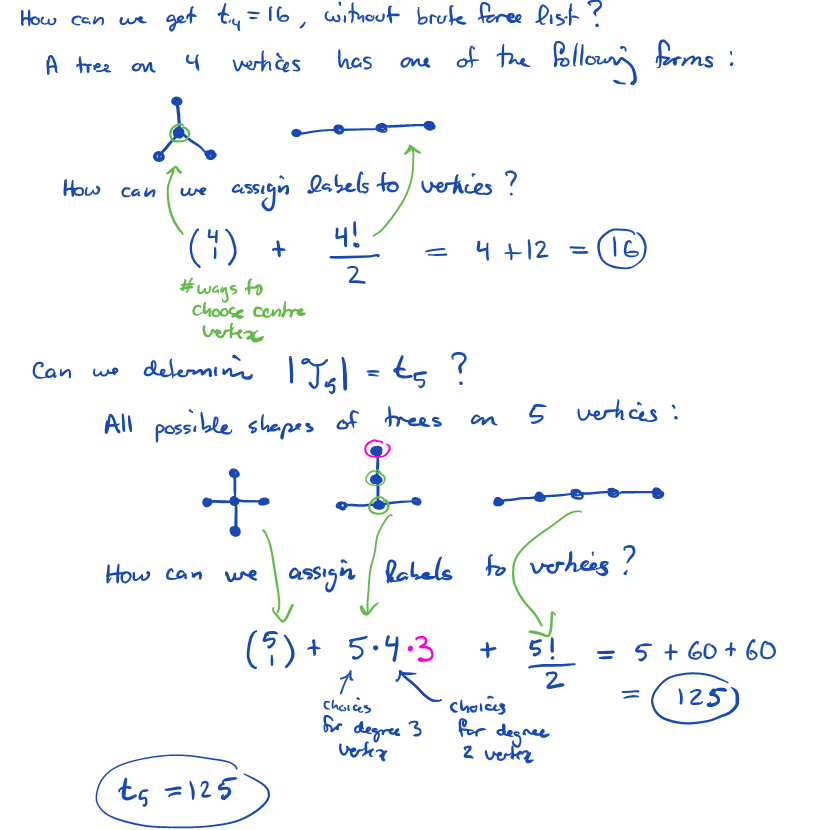 How can we get t₄ = 16, without brute force list?
A tree on 4 vertices has one of the following forms:
How can we assign labels to vertices?
(4 1) + 4!/2 = 4 + 12 = 16
# ways to
choose centre
vertex
Can we determine |𝒯₅| = t₅ ?
All possible shapes of trees on 5 vertices:
How can we assign labels to vertices?
(5 1) + 5·4·3 + 5!/2 = 5 + 60 + 60
= 125
choices
for degree 3
vertex
choices
for degree
2 vertex
t₅ = 125